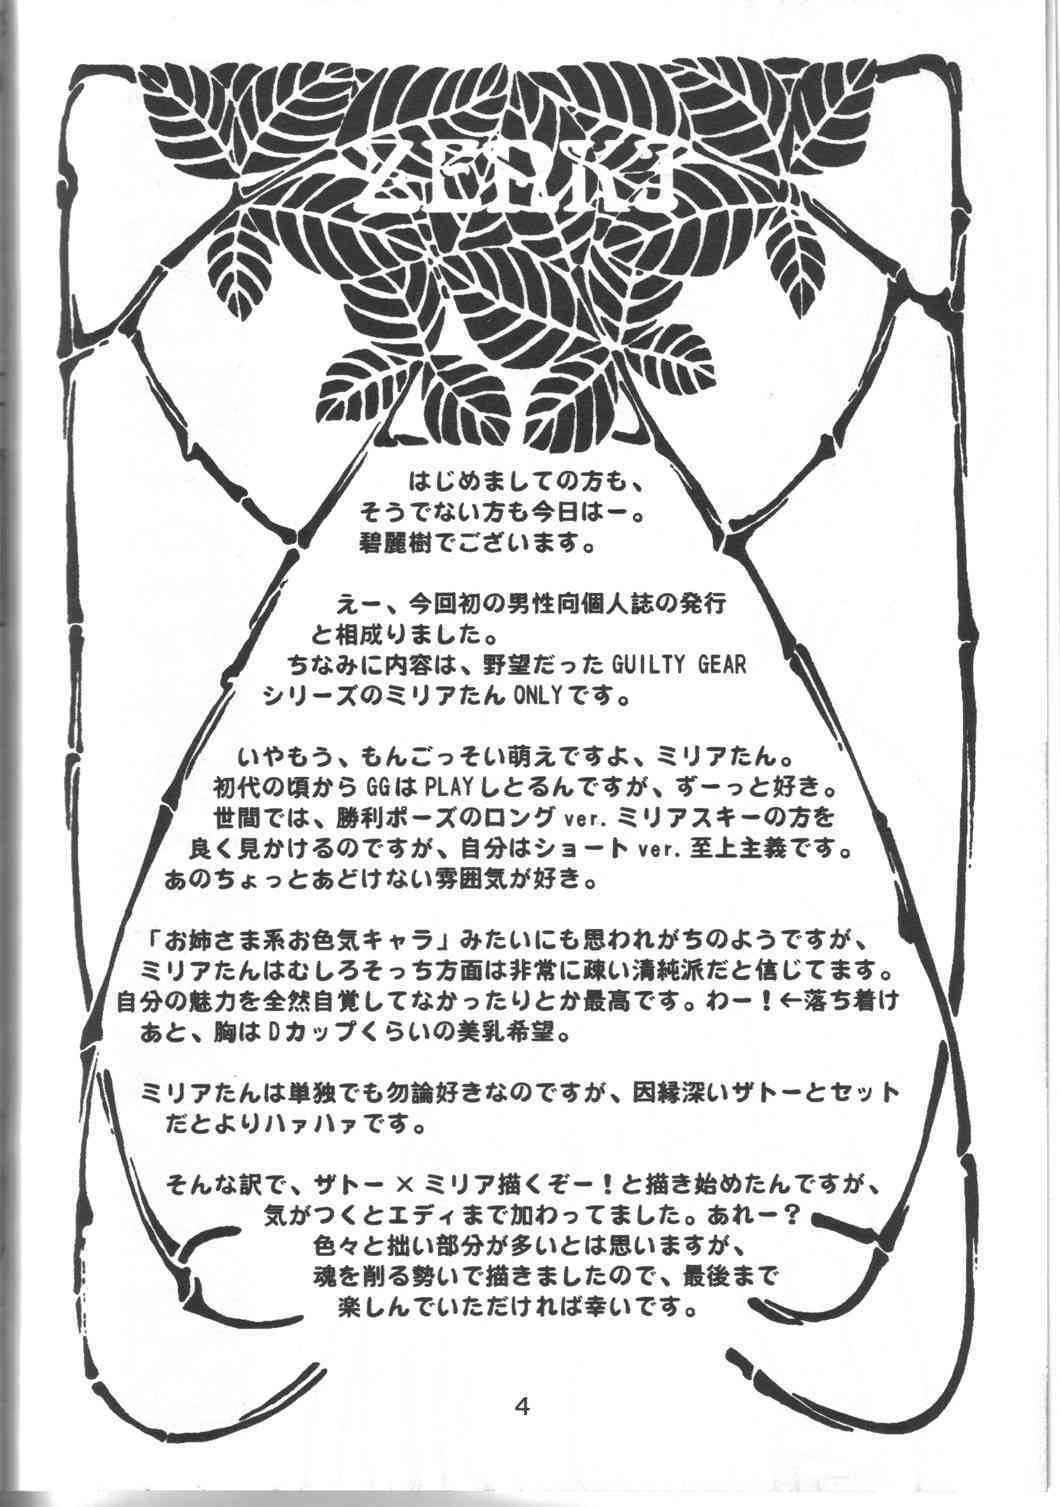 ZENKI
はじめましての方も、
そうでない方も今日はー。
碧麗樹でございます。
えー、今回初の男性向個人誌の発行
と相成りました。
ちなみに内容は、野望だった GUILTY GEAR
シリーズのミリアたん ONLY です。
いやもう、もんごっそい萌えですよ、ミリアたん。
初代の頃から GG は PLAY しとるんですが、ずーっと好き。
世間では、勝利ポーズのロング ver. ミリアスキーの方を
良く見かけるのですが、自分はショート ver. 至上主義です。
あのちょっとあどけない雰囲気が好き。
「お姉さま系お色気キャラ」みたいにも思われがちのようですが、
ミリアたんはむしろそっち方面は非常に疎い清純派だと信じてます。
自分の魅力を全然自覚してなかったりとか最高です。わー！←落ち着け
あと、胸は D カップくらいの美乳希望。
ミリアたんは単独でも勿論好きなのですが、因縁深いザトーとセット
だとよりハァハァです。
そんな訳で、ザトー × ミリア描くぞー！と描き始めたんですが、
気がつくとエディまで加わってました。あれー？
色々と拙い部分が多いとは思いますが、
魂を削る勢いで描きましたので、最後まで
楽しんでいただければ幸いです。
4